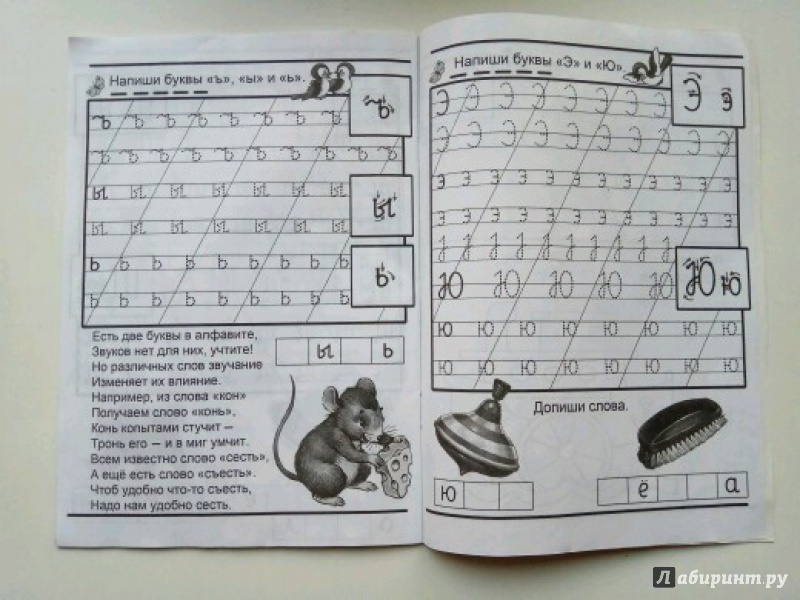 Напиши буквы «ъ», «ы» и «ь».
ъ
ъ ъ ъ ъ ъ ъ ъ ъ ъ
ъ ъ ъ ъ ъ ъ ъ ъ ъ ъ
ы
ы ы ы ы ы ы ы
ы ы ы ы ы ы ы
ь
ь ь ь ь ь ь ь ь ь
ь ь ь ь ь ь ь ь ь
Есть две буквы в алфавите,
Звуков нет для них, учтите!
Но различных слов звучание
Изменяет их влияние.
Например, из слова «кон»
Получаем слово «конь»,
Конь копытами стучит —
Тронь его — и в миг умчит.
Всем известно слово «сесть»,
А ещё есть слово «съесть».
Чтоб удобно что-то съесть,
Надо нам удобно сесть.
ы ь
Напиши буквы «Э» и «Ю».
Э э
Э Э Э Э Э Э Э Э
Э Э Э Э Э Э Э Э Э Э
э э э э э э э э э э э э
э э э э э э э э э э э э
Ю ю
Ю Ю Ю Ю Ю
ю ю ю ю ю ю ю
ю ю ю ю ю ю ю
Допиши слова.
ю
ё а
Лабиринт.ру